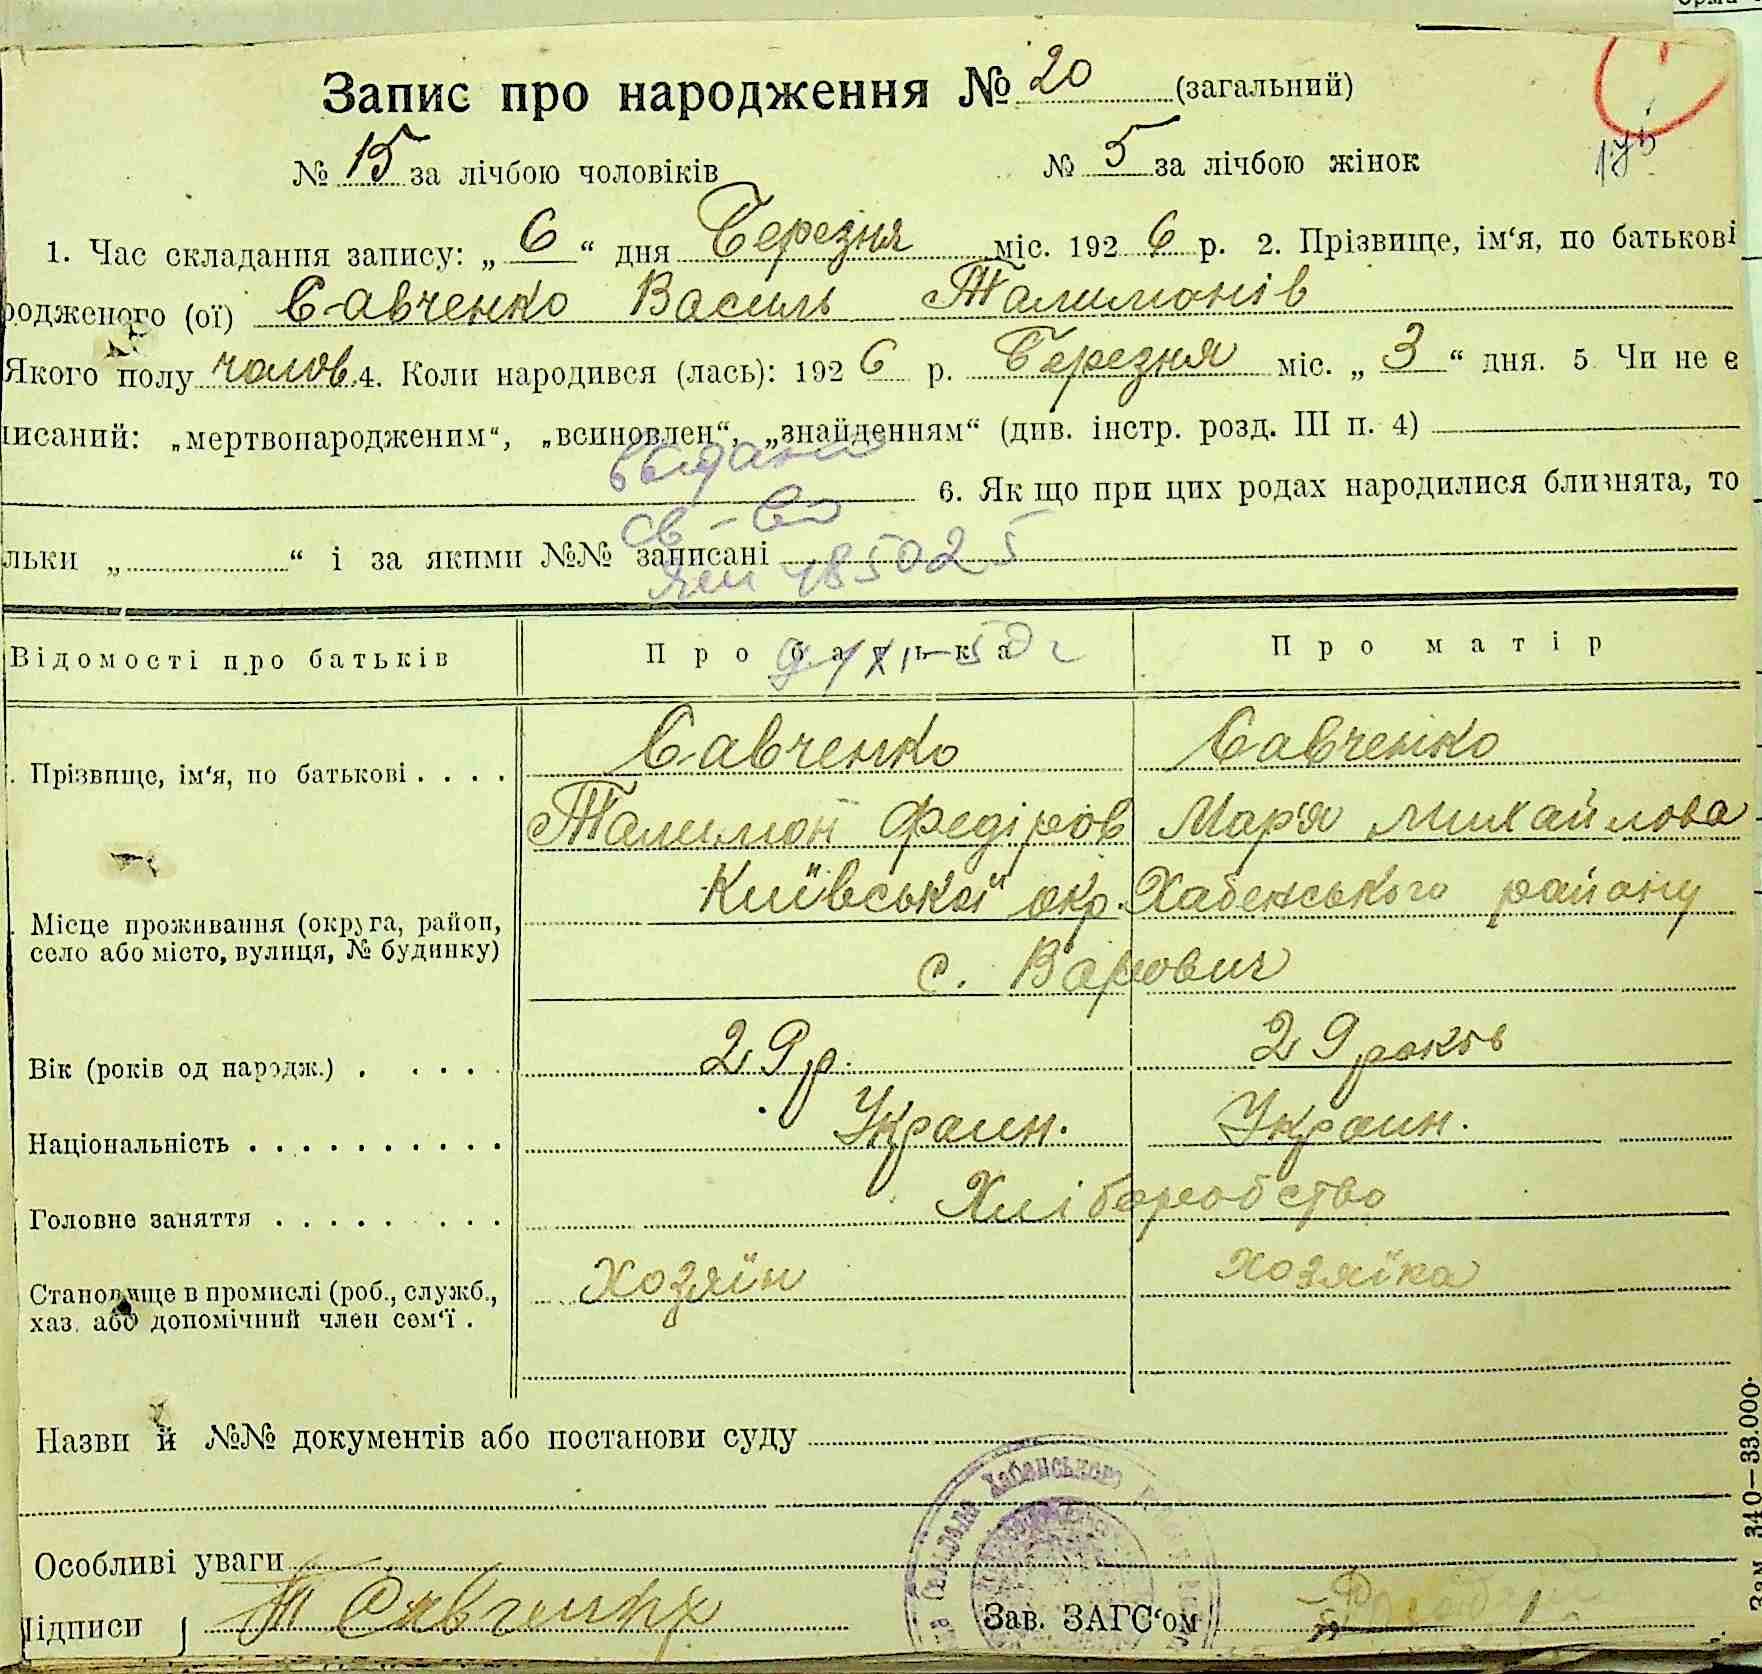 Запис про народження № 20 (загальний)
№ 15 за лічбою чоловіків № 5 за лічбою жінок
175
1. Час складання запису: „ 6 “ дня Березня міс. 192 6 р. 2. Прізвище, ім‘я, по батькові
родженого (ої) Савченко Василь Талимонів
Якого полу чолов. 4. Коли народився (лась): 192 6 р. Березня міс. „ 3 “ дня. 5 Чи не є
писаний: „мертвонародженим“, „всиновлен“, „знайденням“ (див. інстр. розд. III п. 4)
выдано
6. Як що при цих родах народилися близнята, то
св-во
льки „ “ і за якими №№ записані
485025
Відомості про батьків Про батька Про матір
9/XI-50 г
Прізвище, ім‘я, по батькові . . . . Савченко Савченко
Талимон Федіров Мар'я Михайлова
Місце проживання (округа, район, село або місто, вулиця, № будинку) Київської окр. Хабенського району
с. Варович
Вік (років од народж.) . . . . . 29 р. 29 років
Національність . . . . . . . . . . Украин. Украин.
Головне заняття . . . . . . . . Хліборобство
Становище в промислі (роб., служб., хаз. або допомічний член сем‘ї . Хозяїн Хозяїка
Назви й №№ документів або постанови суду
Особливі уваги
Хабенського
Підписи Т Савченко Зав. ЗАГС‘ом
Зам. 340—33.000.